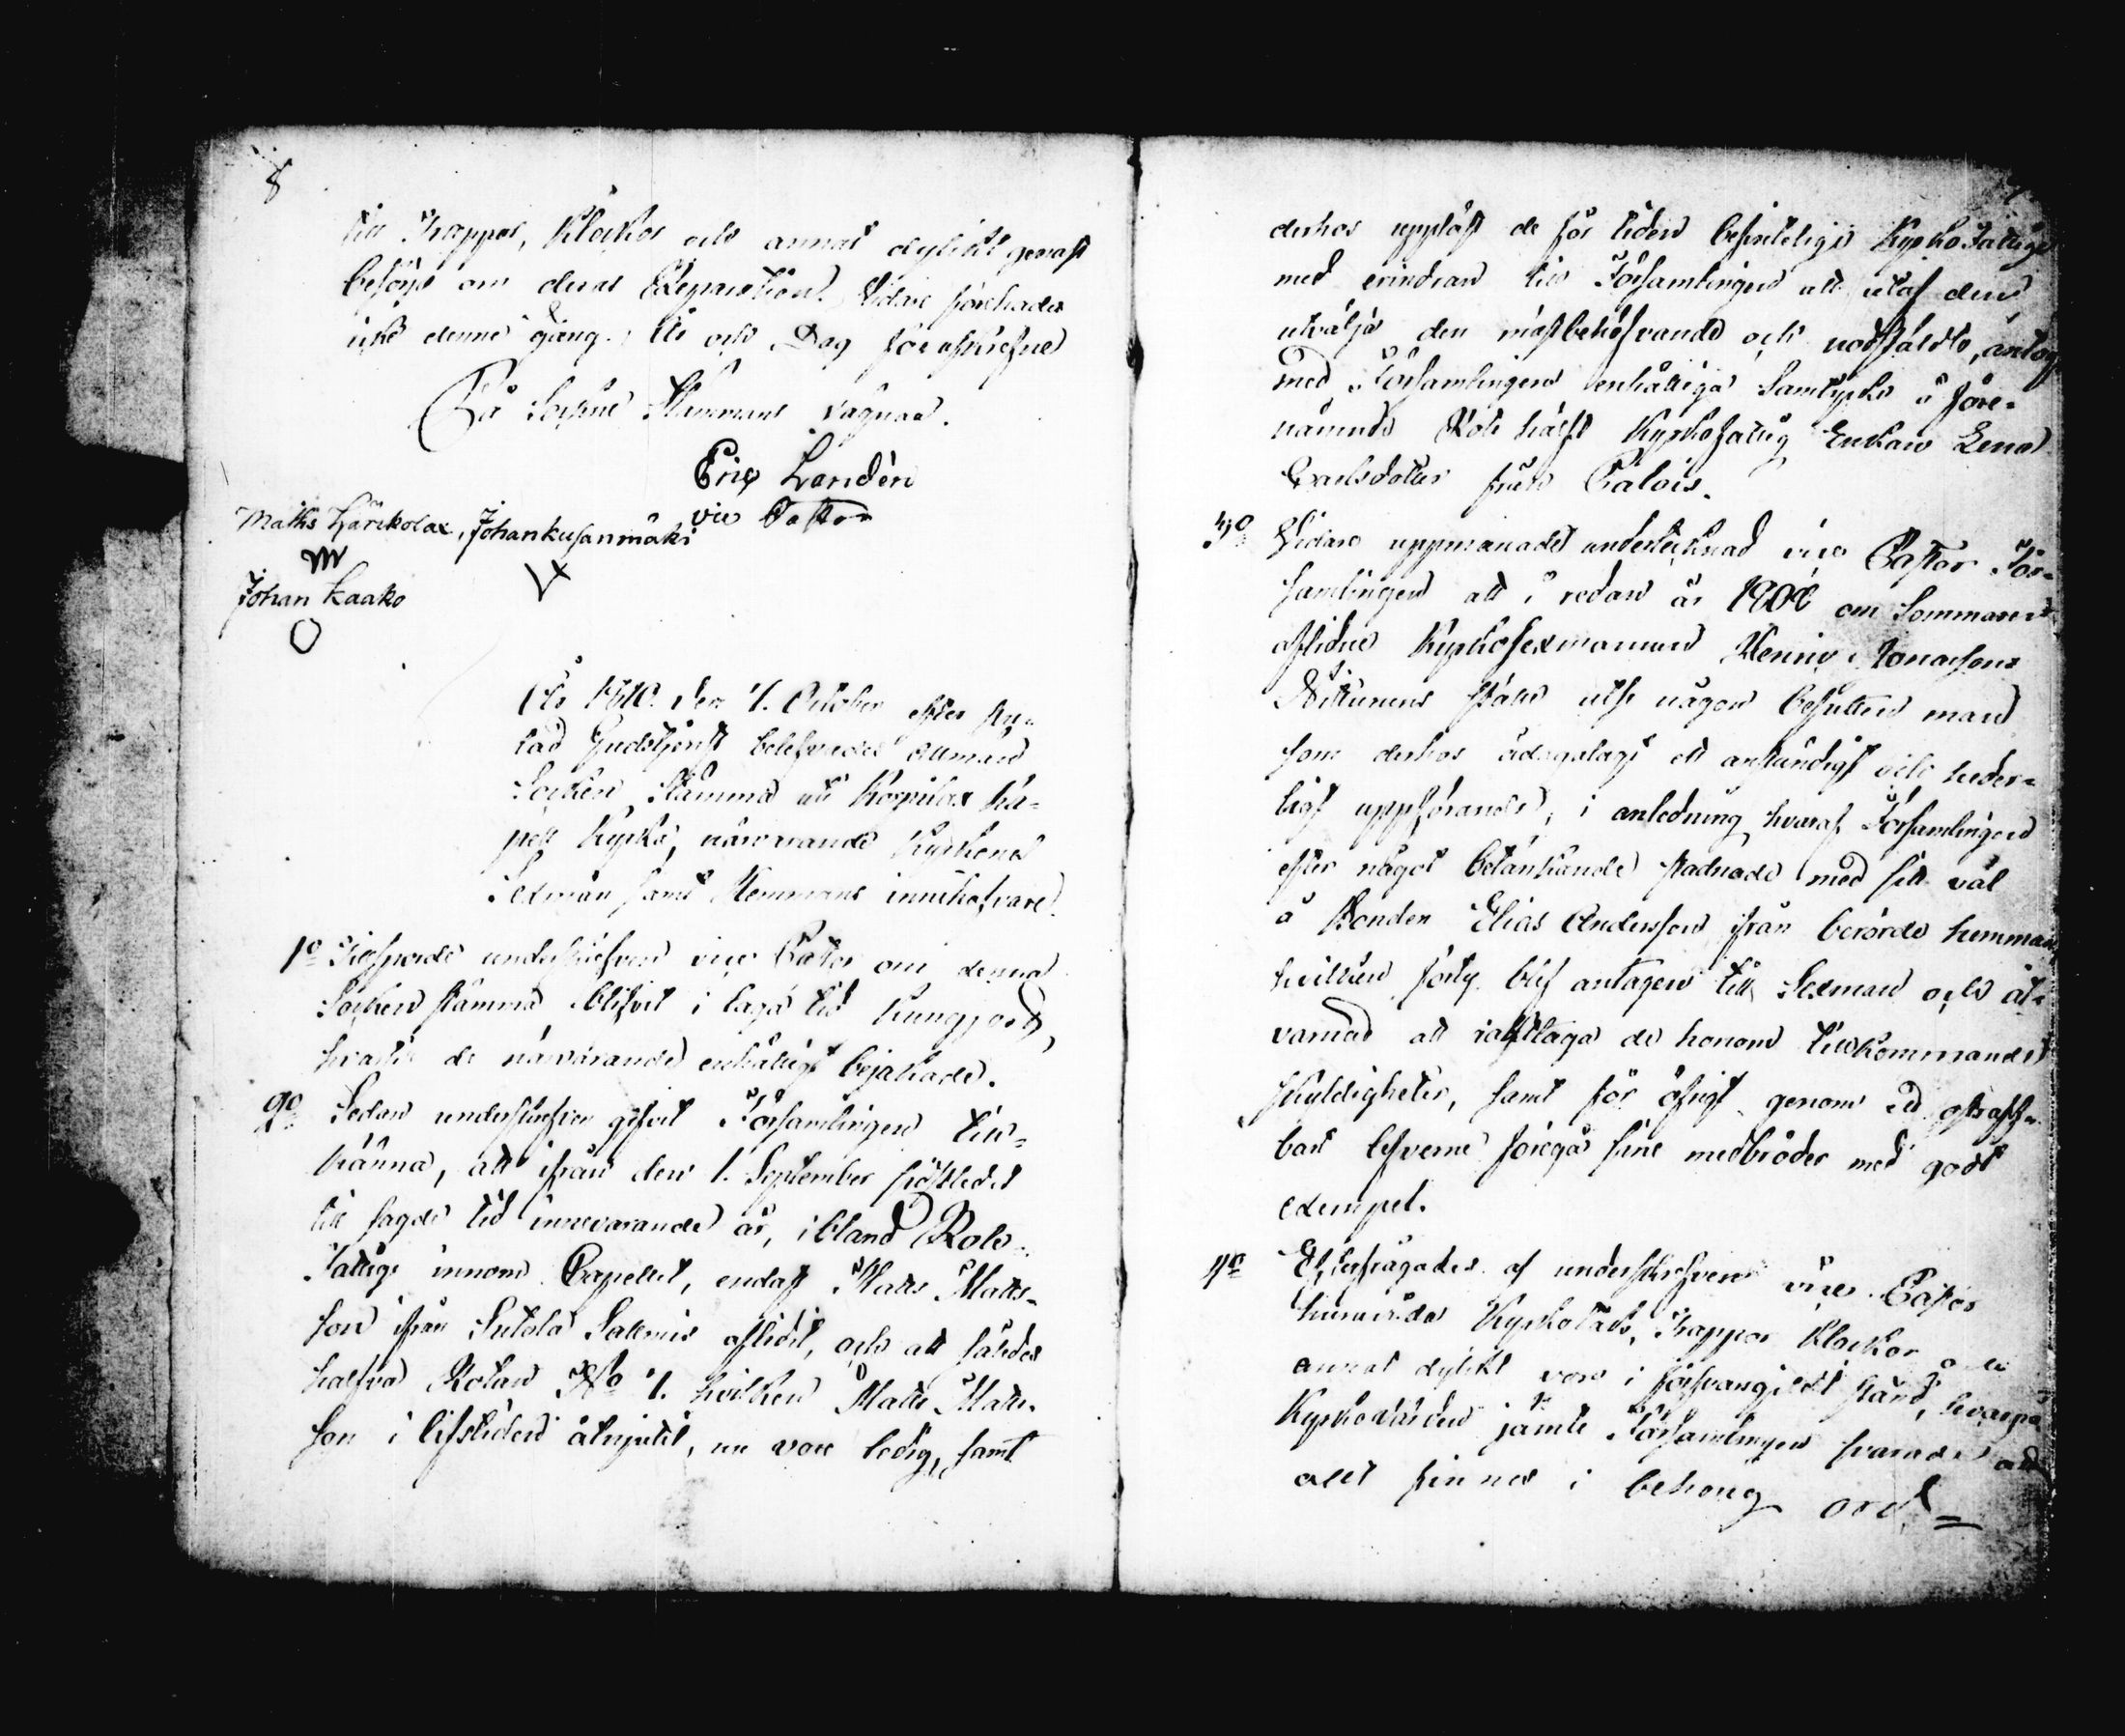 8
till Trappor, Klockor och annat dylikt genast
besörja om deras Reparation. Vidare förehades
icke denna gång. År och Dag föreskrefne
På Sockne Stämmans vägnar.
Eric Landén
vice Pastor
Maths Kärikolax, Johan kusanmäki
Johan Kaako
År 1810 den 7. October efter slu-
tad Gudstjenst belefvades allmän
Socken Stämma uti Korpilax Ka-
pell Kyrka, närvarande Kyrkones
Sexmän samt Hemmans innehafvare.
1o Tilsporde underskrefven vice Pastor om denna
Socken stämma blifvit i laga tid kungjord,
hvartil de närvarande enhälligt bejakade.
2o Sedan underskrefven gifvit Församlingen till-
känna, att ifrån den 1. September sistledit
till sagde tid innevarande år, ibland Rote-
fattige innom Capellet, endast Matts Matts-
son ifrån Sutela Salmis aflidit, och att således
halfva Rotan No 7. hvilken Matts Matts-
son i lifstiden åtnjutit, nu vore ledig, samt
derhos uppläst de för tiden befintelige Kyrkofattige
med erindran till Församlingen att utaf dem
utvälja den mäst behöfvande och nödstälde, antog
med Församlingens enhälliga samtycke å före-
nämnde Rote hälft Kyrkofattig Enkan Lena
Carlsdotter från Palois.
3o Vidare uppmanade undertecknad vice Pastor För-
samlingen att i redan år 1808 om Sommaren
aflidne Kyrkosexmannen Henric Jonassons
ställe utse någon besutten man
som derhos ådagalagt ett anständigt och heder-
ligt uppförande, i anledning hvaraf Församlingen
efter något betänkande stadnade med sitt val
å Bonden Elias Andersson ifrån berörde hemman
hvilken förty blef antagen till Sexman och åt-
varnad att iakttaga de honom tillkommande
skyldigheter, samt för öfrigt genom ett ostraff-
bart lefverne föregå sine medbröder med godt
exempel.
4o Efterfrågades af underskrefven vice Pastor
huruvida Kyrkotak, Trappor Klockor och
annat dylikt vore i förswangildt stånd, hvarpå
Kyrkovärden jämte Församlingen svarade att
allt finnes i behörig ord-